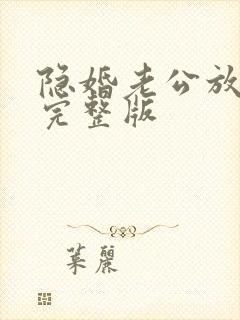 隐婚老公放
完整版
葉麗